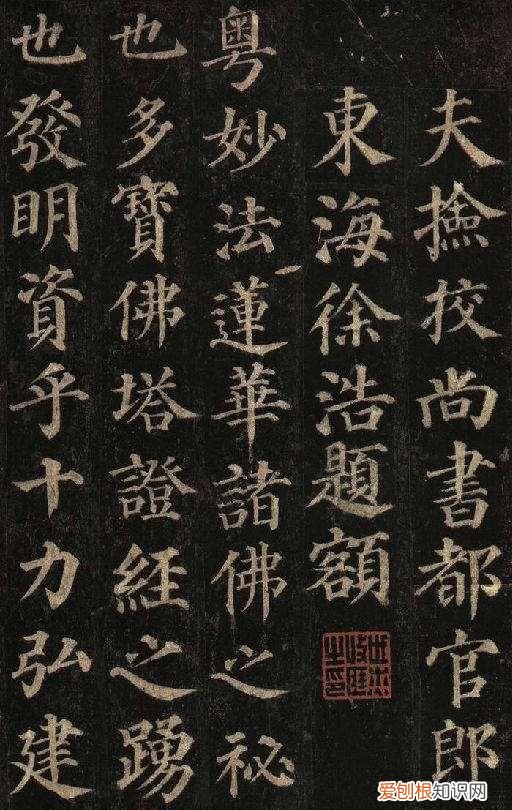 夫撿挍尚書都官郎
東海徐浩題額
粤妙法蓮華諸佛之祕
也多寶佛塔證經之踴
也發明資乎十力弘建
爱刨根知识网
www.baogen.com